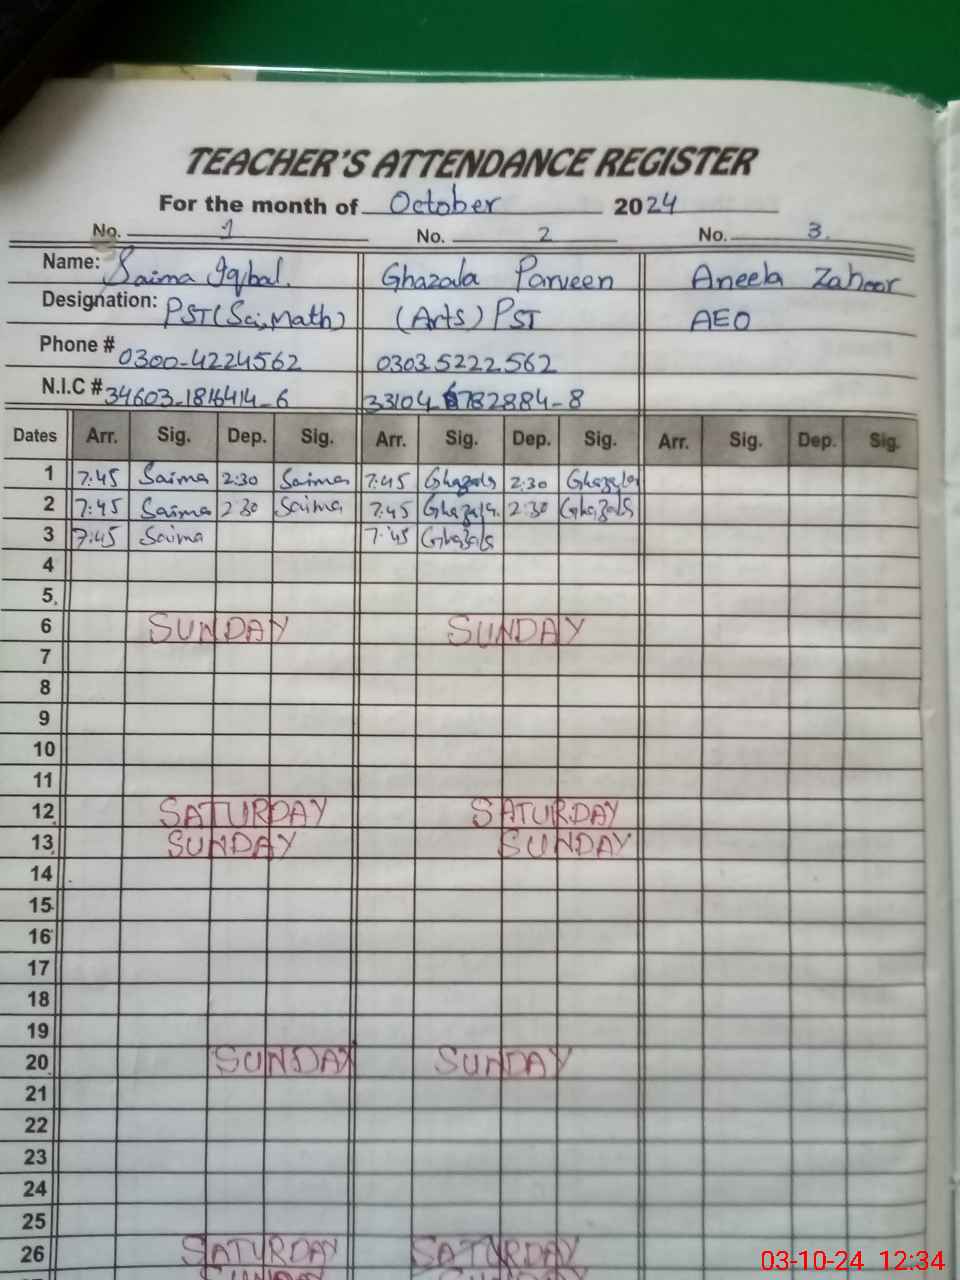 TEACHER'S ATTENDANCE REGISTER
For the month of October 2024
No. 1 No. 2 No. 3.
Name: Saima Iqbal. Ghazala Parveen Aneela Zahoor
Designation: PST(Sci,Math) (Arts) PST AEO
Phone # 0300-4224562 0303.5222562
N.I.C # 34603-1816414-6 33104 6782884-8
Dates Arr. Sig. Dep. Sig. Arr. Sig. Dep. Sig. Arr. Sig. Dep. Sig.
1 7:45 Saima 2:30 Saima 7:45 Ghazala 2:30 Ghazala
2 7:45 Saima 2 30 Saima 7:45 Ghazala. 2:30 Ghazala
3 7:45 Saima 7:45 Ghazala
4
5
6 SUNDAY SUNDAY
7
8
9
10
11
12 SATURDAY SATURDAY
13 SUNDAY SUNDAY
14
15
16
17
18
19
20 SUNDAY SUNDAY
21
22
23
24
25
26 SATURDAY SATURDAY
03-10-24 12:34